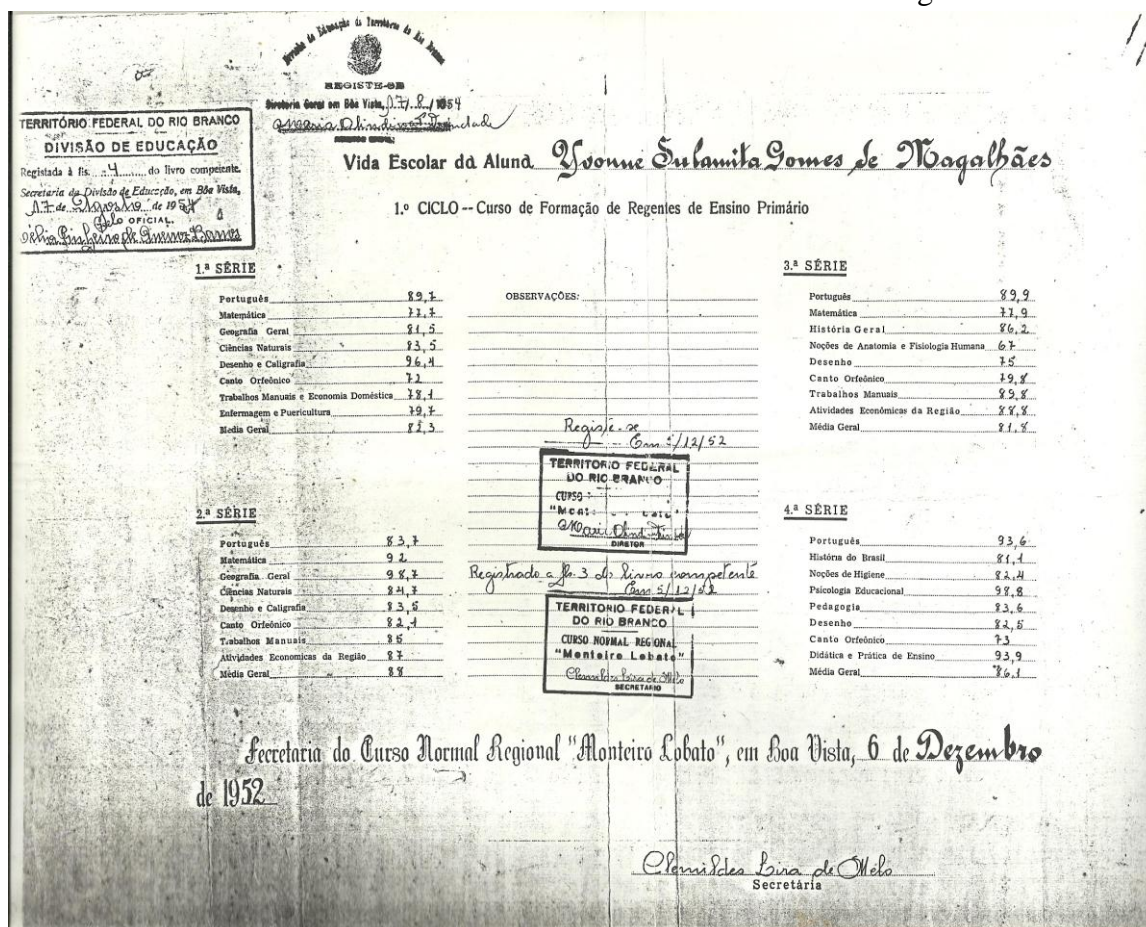 Divisão de Educação do Território do Rio Branco
REGISTE-SE
Diretoria Geral em Bôa Vista, 17/8/1954
Maria Olindina Trindade
TERRITÓRIO FEDERAL DO RIO BRANCO
DIVISÃO DE EDUCAÇÃO
Registada à fls. 4 do livro competente.
Secretaria da Divisão de Educação, em Bôa Vista,
17 de Agosto de 1954
Pelo OFICIAL
Vida Escolar da Aluna Yvonne Sulamita Gomes de Magalhães
1.º CICLO -- Curso de Formação de Regentes de Ensino Primário
1.ª SÉRIE
Português 89,7
Matemática 77,7
Geografia Geral 81,5
Ciências Naturais 83,5
Desenho e Caligrafia 96,4
Canto Orfeônico 72
Trabalhos Manuais e Economia Doméstica 78,1
Enfermagem e Puericultura 79,7
Media Geral 82,3
2.ª SÉRIE
Português 83,7
Matemática 92
Geografia Geral 98,7
Ciências Naturais 84,7
Desenho e Caligrafia 83,5
Canto Orfeônico 82,1
Trabalhos Manuais 85
Atividades Economicas da Região 87
Média Geral 88
OBSERVAÇÕES:
Registe-se
Em 5/12/52
TERRITORIO FEDERAL
DO RIO BRANCO
CURSO
DIRETOR
Registrado a fls. 3 do livro competente
Em 5/12/52
TERRITORIO FEDERAL
DO RIO BRANCO
CURSO NORMAL REGIONAL
"Monteiro Lobato"
Clemildes Lira de Melo
SECRETARIO
3.ª SÉRIE
Português 89,9
Matemática 77,9
História Geral 86,2
Noções de Anatomia e Fisiologia Humana 67
Desenho 75
Canto Orfeônico 79,8
Trabalhos Manuais 89,8
Atividades Econômicas da Região 88,8
Média Geral 81,8
4.ª SÉRIE
Português 93,6
História do Brasil 81,1
Noções de Higiene 82,4
Psicologia Educacional 98,8
Pedagogia 83,6
Desenho 82,5
Canto Orfeônico 73
Didática e Prática de Ensino 93,9
Média Geral 86,1
Secretaria do Curso Normal Regional "Monteiro Lobato", em Boa Vista, 6 de Dezembro
de 1952
Clemildes Lira de Melo
Secretária